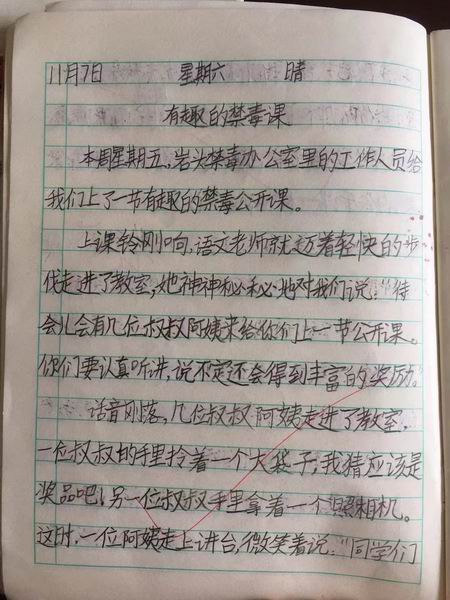 11月7日 星期六 晴
有趣的禁毒课
本周星期五,岩头禁毒办公室里的工作人员给
我们上了一节有趣的禁毒公开课。
上课铃刚响,语文老师就迈着轻快的步
伐走进了教室,她神神秘秘地对我们说:“待
会儿会有几位叔叔阿姨来给你们上一节公开课。
你们要认真听讲,说不定还会得到丰富的奖励。”
话音刚落,几位叔叔阿姨走进了教室,
一位叔叔的手里拎着一个大袋子,我猜应该是
奖品吧!另一位叔叔手里拿着一个照相机。
这时,一位阿姨走上讲台,微笑着说:“同学们